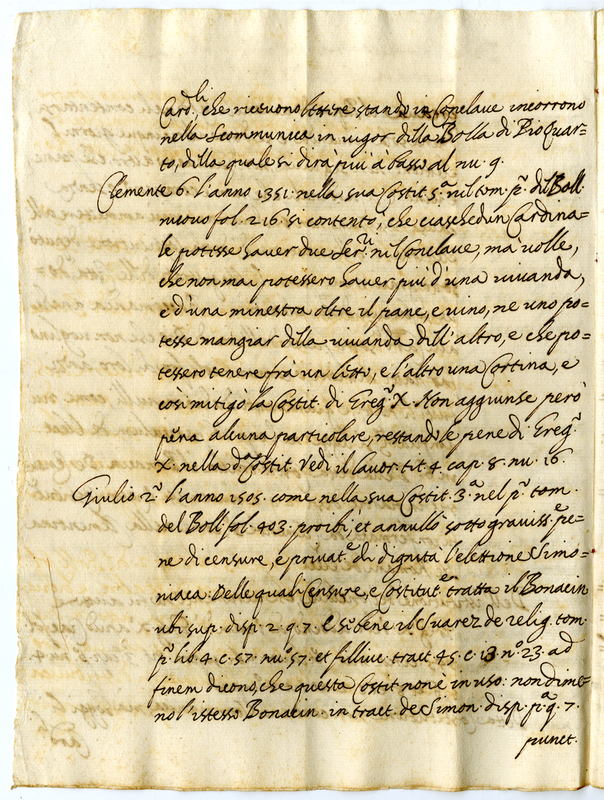 Card.li che riceuono lettere stando in Conclaue incorrono
nella scommunica in uigor della Bolla di Pio Quar=
to, della quale si dirà più à basso al nu. 9.
Clemente 6. l'anno 1351. nella sua Costit. 5.a nel tom. p.o del Boll.
nuouo fol. 216. si contentò, che ciaschedun Cardina=
le potesse hauer due Ser.ri nel Conclaue, mà uolle,
che non mai potessero hauer più d'una uiuanda,
e d'una minestra oltre il pane, e uino, ne uno po=
tesse mangiar della uiuanda dell'altro, e che po=
tessero tenere frà un letto, e l'altro una Cortina, e
così mitigò la Costit. di Greg.o X. Non aggiunse però
pena alcuna particolare, restando le pene di Greg.o
X. nella d.a Costit. Vedi il lauor. tit. 4. cap. 8. nu. 16.
Giulio 2.o l'anno 1505. come nella sua Costit. 3.a nel p.o tom.
del Boll. fol. 403. proibì, et annullò sotto grauiss.e pe=
ne di censure, e priuat.e di dignità l'elettione Simo=
niaca. Delle quali Censure, e Costitut.e tratta il Bonacin
ubi sup. disp. 2. q. 7. e se bene il Suarez de relig. tom.
p.o lib. 4. c. 57. nu.o 57. et filliuc. tract. 45. c. 13. n.o 23. ad
finem dicono, che questa Costit. non è in uso: nondime=
no l'istesso Bonacin. in tract. de Simon. disp. p.a q. 7.
punct.